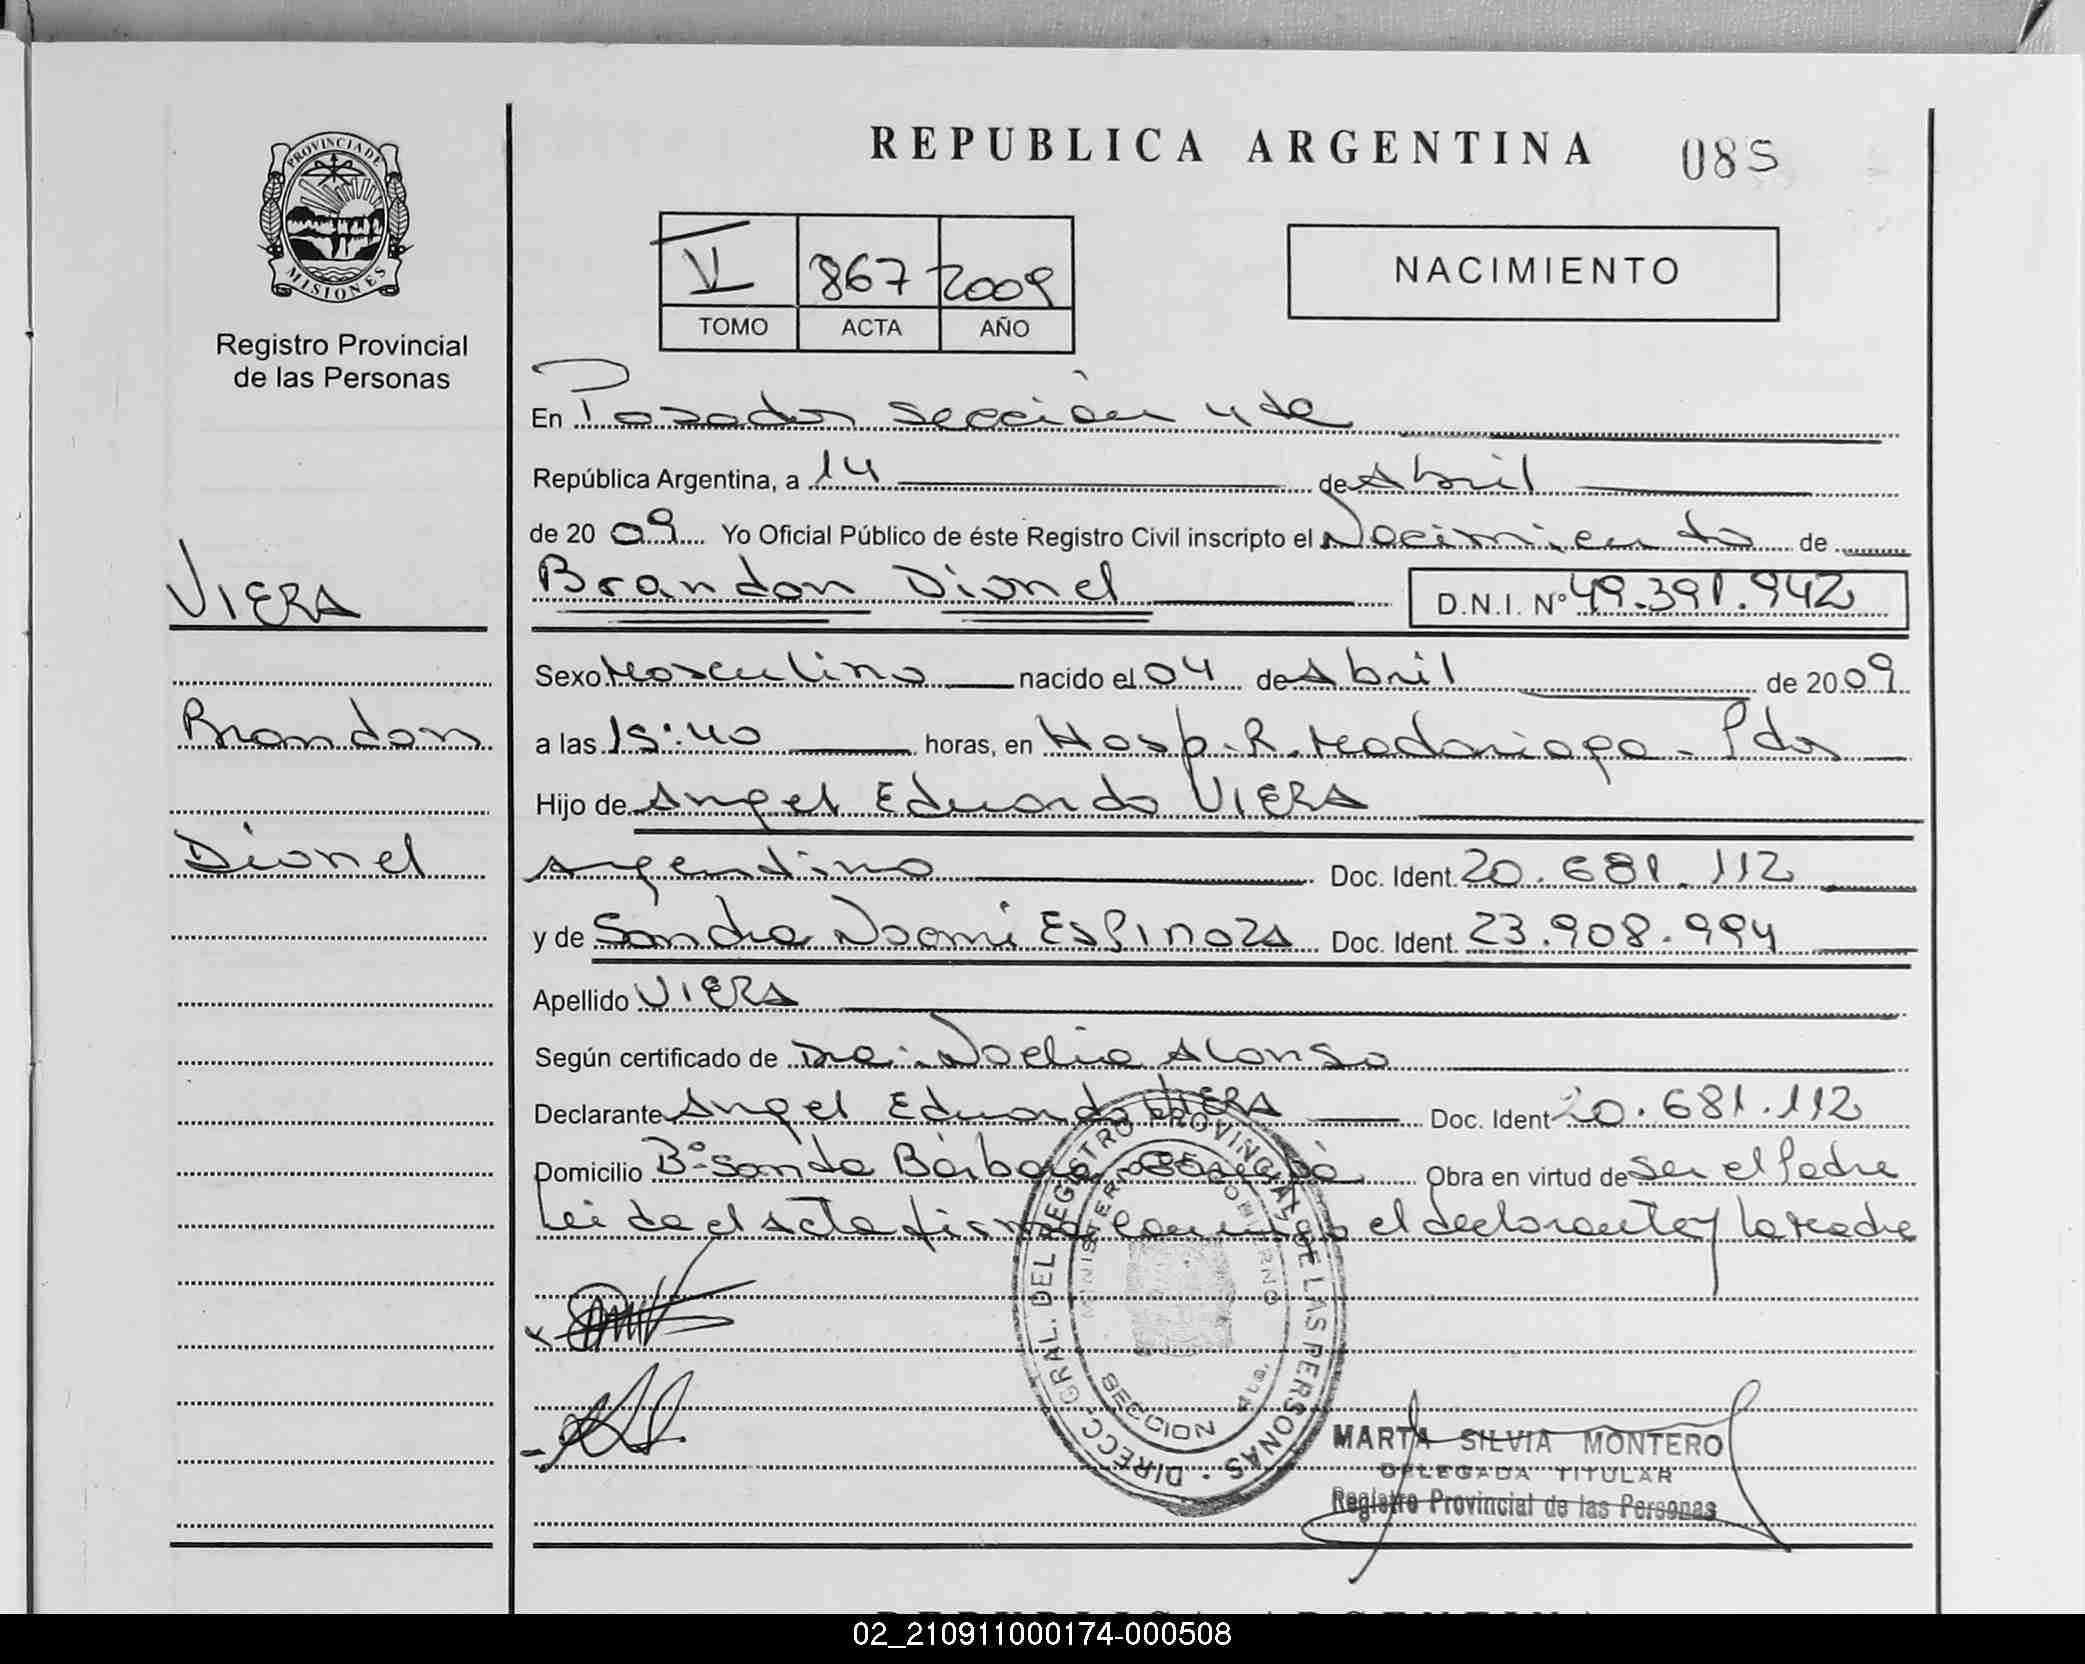 REPUBLICA ARGENTINA 085
PROVINCIA DE
MISIONES
Registro Provincial
de las Personas
V 867 2009
TOMO ACTA AÑO
NACIMIENTO
En Posadas sección 4ta
República Argentina, a 14 de Abril
de 2009 Yo Oficial Público de éste Registro Civil inscripto el Nacimiento de
Brandon Dionel D.N.I. Nº 49.391.942
VIERA
Brandon
Dionel
Sexo Masculino nacido el 04 de Abril de 2009
a las 15:40 horas, en Hosp. R. Madariaga - Pdas
Hijo de Angel Eduardo VIERA
Argentino Doc. Ident. 20.681.112
y de Sandra Noemi ESPINOZA Doc. Ident. 23.908.994
Apellido VIERA
Según certificado de Dra. Noelia Alonso
Declarante Angel Eduardo VIERA Doc. Ident 20.681.112
Domicilio Bº Santa Bárbara - Obra en virtud de ser el Padre
Leida el acta firma conmigo el declarante y la Madre
DIRECC. GRAL. DEL REGISTRO PROVINCIAL DE LAS PERSONAS
MINISTERIO DE GOBIERNO
SECCION 4ta.
MARTA SILVIA MONTERO
DELEGADA TITULAR
Registro Provincial de las Personas
REPUBLICA ARGENTINA
02_210911000174-000508